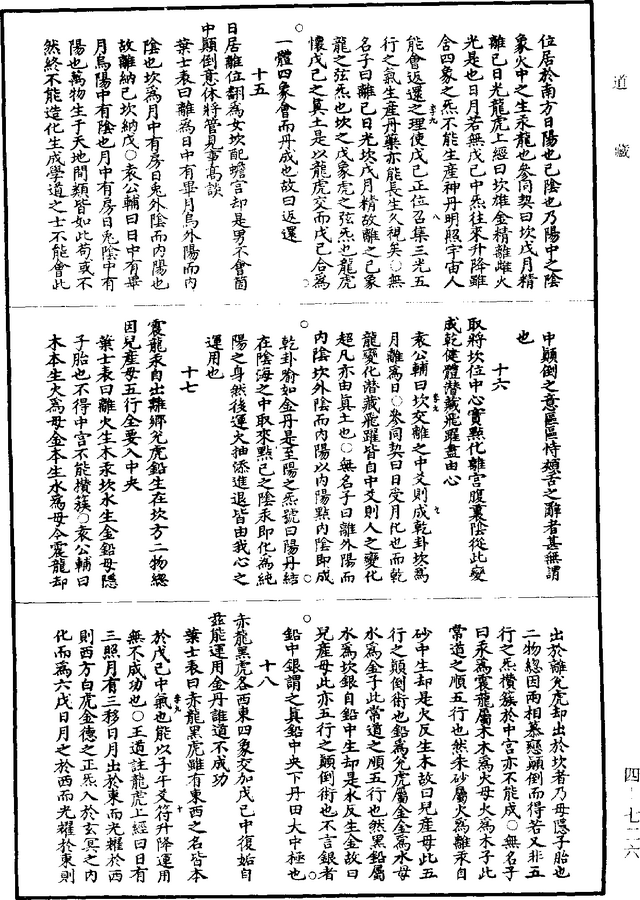 道藏
四-七二六
位居於南方日陽也己陰也乃陽中之陰
象火中之生汞龍也參同契曰坎戊月精
離己日光龍虎上經曰坎雄金精離雌火
光是也日月若無戊己中炁往來升降雖
含四象之炁不能生產神丹明照宇宙人
能會返還之理使戊己正位召集三光五
行之氣生產丹藥亦能長生久視矣○無
名子曰離己日光坎戊月精故離之己象
龍之弦炁也坎之戊象虎之弦炁也龍虎
懷戊己之真土是以龍虎交而戊己合為
一體四象會而丹成也故曰返還
十五
日居離位翻為女坎配蟾宮却是男不會箇
中顛倒意休將管見事高談
葉士表曰離為日中有畢月烏外陽而內
陰也坎為月中有房日兎外陰而內陽也
故離納己坎納戊○袁公輔曰日中有畢
月烏陽中有陰也月中有房日兎陰中有
陽也萬物生于天地間類皆如此苟或不
然終不能造化生成學道之士不能會此
中顛倒之意區區恃頰舌之辭者甚無謂
也
十六
取將坎位中心實點化離宮腹裏陰從此變
成乾健體潛藏飛躍盡由心
袁公輔曰坎交離之中爻則成乾卦坎為
月離為日○參同契曰日受月化也而乾
龍變化潛藏飛躍皆自中爻則人之變化
超凡亦由真土也○無名子曰離外陽而
內陰坎外陰而內陽以內陽點內陰即成
乾卦喻如金丹是至陽之炁號曰陽丹結
在陰海之中取來點己之陰汞即化為純
陽之身然後運火抽添進退皆由我心之
運用也
十七
震龍汞自出離鄉兌虎鉛生在坎方二物總
因兒產母五行全要入中央
葉士表曰離火生木汞坎水生金鉛母隱
子胎也不得中宮不能攢簇○袁公輔曰
木本生火為母金本生水為母今震龍却
出於離兌虎却出於坎者乃母隱子胎也
二物總因兩相慕戀顛倒而得若又非五
行之炁攢簇於中宮亦不能成○無名子
曰汞為震龍屬木木為火母火為木子此
常道之順五行也然朱砂屬火為離汞自
砂中生却是火反生木故曰兒產母此五
行之顛倒術也鉛為兌虎屬金金為水母
水為金子此常道之順五行也然黑鉛屬
水為坎銀自鉛中生却是水反生金故曰
兒產母此亦五行之顛倒術也不言銀者
鉛中銀謂之真鉛中央下丹田大中極也
十八
赤龍黑虎各西東四象交加戊己中復姤自
茲能運用金丹誰道不成功
葉士表曰赤龍黑虎雖有東西之名皆本
於戊己中氣也能以子午爻符升降運用
無不成功也○王道註龍虎上經曰日有
三照月有三移日月出於東而光耀於西
則西方白虎金德之正炁入於玄冥之內
化而為六戊日月之於西而光耀於東則